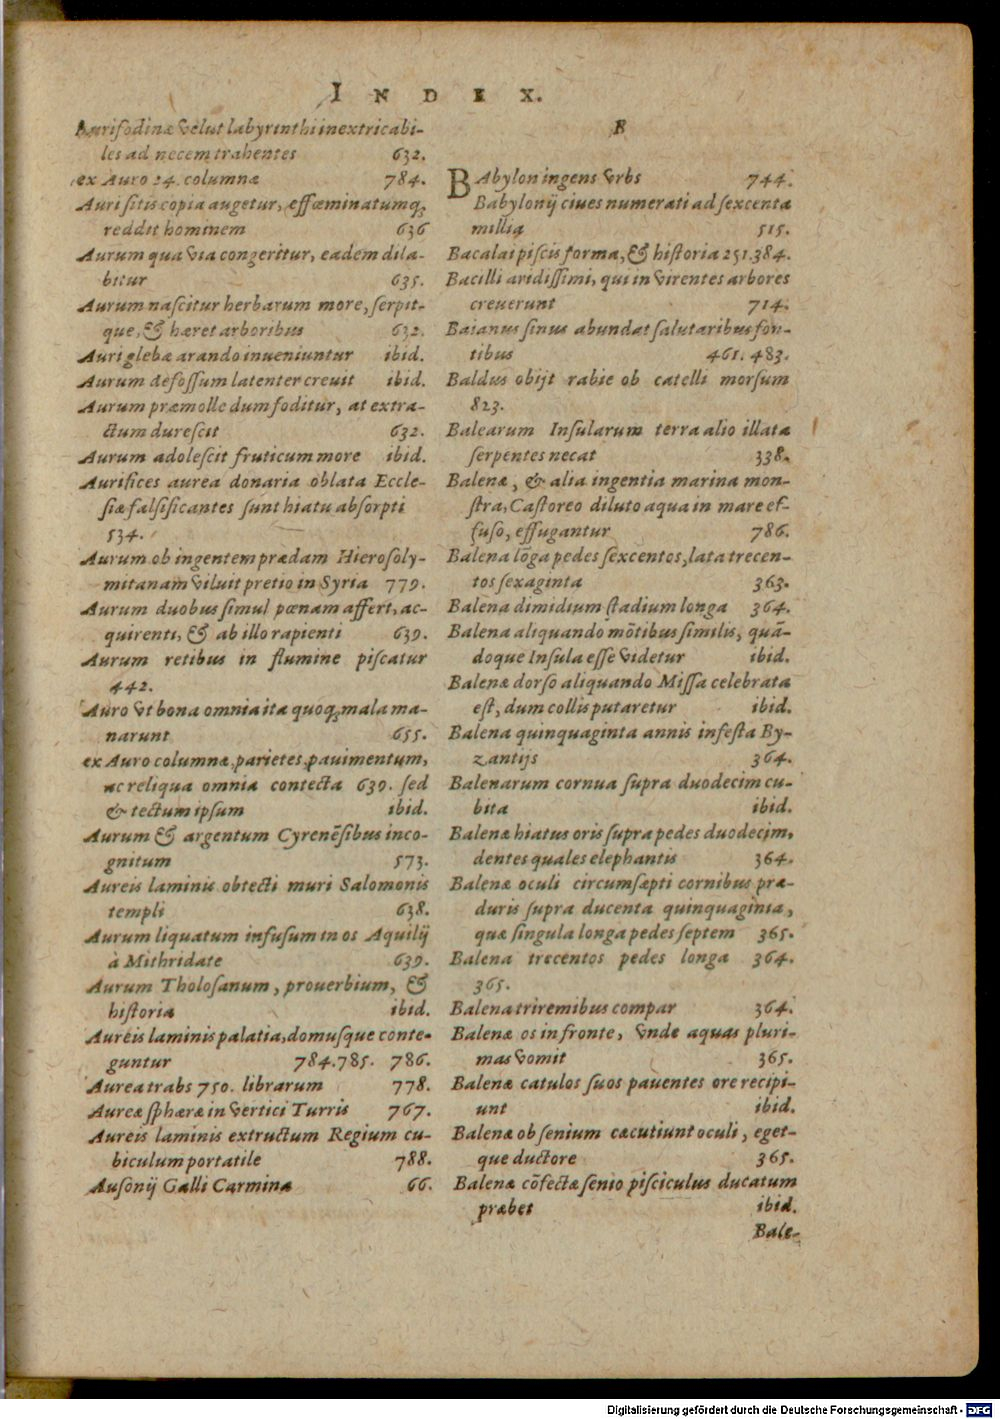 INDEX.
Aurifodinæ velut labyrinthi inextricabi-
les ad necem trahentes 632.
ex Auro 24. columnæ 784.
Auri sitis copia augetur, effœminatumq;
reddit hominem 636
Aurum qua via congeritur, eadem dila-
bitur 635.
Aurum nascitur herbarum more, serpit-
que, & hæret arboribus 632.
Auri glebæ arando inueniuntur ibid.
Aurum defossum latenter creuit ibid.
Aurum præmolle dum foditur, at extra-
ctum durescit 632.
Aurum adolescit fruticum more ibid.
Aurifices aurea donaria oblata Eccle-
siæ falsificantes sunt hiatu absorpti
534.
Aurum ob ingentem prædam Hierosoly-
mitanam viluit pretio in Syria 779.
Aurum duobus simul pœnam affert, ac-
quirenti, & ab illo rapienti 639.
Aurum retibus in flumine piscatur
442.
Auro vt bona omnia ita quoq; mala ma-
narunt 655.
ex Auro columnæ, parietes, pauimentum,
ac reliqua omnia contecta 639. sed
& tectum ipsum ibid.
Aurum & argentum Cyrenẽsibus inco-
gnitum 573.
Aureis laminis obtecti muri Salomonis
templi 638.
Aurum liquatum infusum in os Aquilij
à Mithridate 639.
Aurum Tholosanum, prouerbium, &
historia ibid.
Aureis laminis palatia, domusque conte-
guntur 784. 785. 786.
Aurea trabs 750. librarum 778.
Aureæ sphæræ in vertici Turris 767.
Aureis laminis extructum Regium cu-
biculum portatile 788.
Ausonij Galli Carmina 66.
B
BAbylon ingens vrbs 744.
Babylonij ciues numerati ad sexcenta
millia 515.
Bacalai piscis forma, & historia 251. 384.
Bacilli aridissimi, qui in virentes arbores
creuerunt 714.
Baianus sinus abundat salutaribus fon-
tibus 461. 483.
Baldus obijt rabie ob catelli morsum
823.
Balearum Insularum terra alio illata
serpentes necat 338.
Balenæ, & alia ingentia marina mon-
stra, Castoreo diluto aqua in mare ef-
fuso, effugantur 786.
Balena lõga pedes sexcentos, lata trecen-
tos sexaginta 363.
Balena dimidium stadium longa 364.
Balena aliquando mõtibus similis, quã-
doque Insula esse videtur ibid.
Balenæ dorso aliquando Missa celebrata
est, dum collis putaretur ibid.
Balena quinquaginta annis infesta By-
zantijs 364.
Balenarum cornua supra duodecim cu-
bita ibid.
Balenæ hiatus oris supra pedes duodecim,
dentes quales elephantis 364.
Balenæ oculi circumsæpti cornibus præ-
duris supra ducenta quinquaginta,
quæ singula longa pedes septem 365.
Balena trecentos pedes longa 364.
365.
Balena triremibus compar 364.
Balenæ os in fronte, vnde aquas pluri-
mas vomit 365.
Balenæ catulos suos pauentes ore recipi-
unt ibid.
Balenæ ob senium cæcutiunt oculi, eget-
que ductore 365.
Balenæ cõfectæ senio pisciculus ducatum
præbet ibid.
Bale-
Digitalisierung gefördert durch die Deutsche Forschungsgemeinschaft - DFG